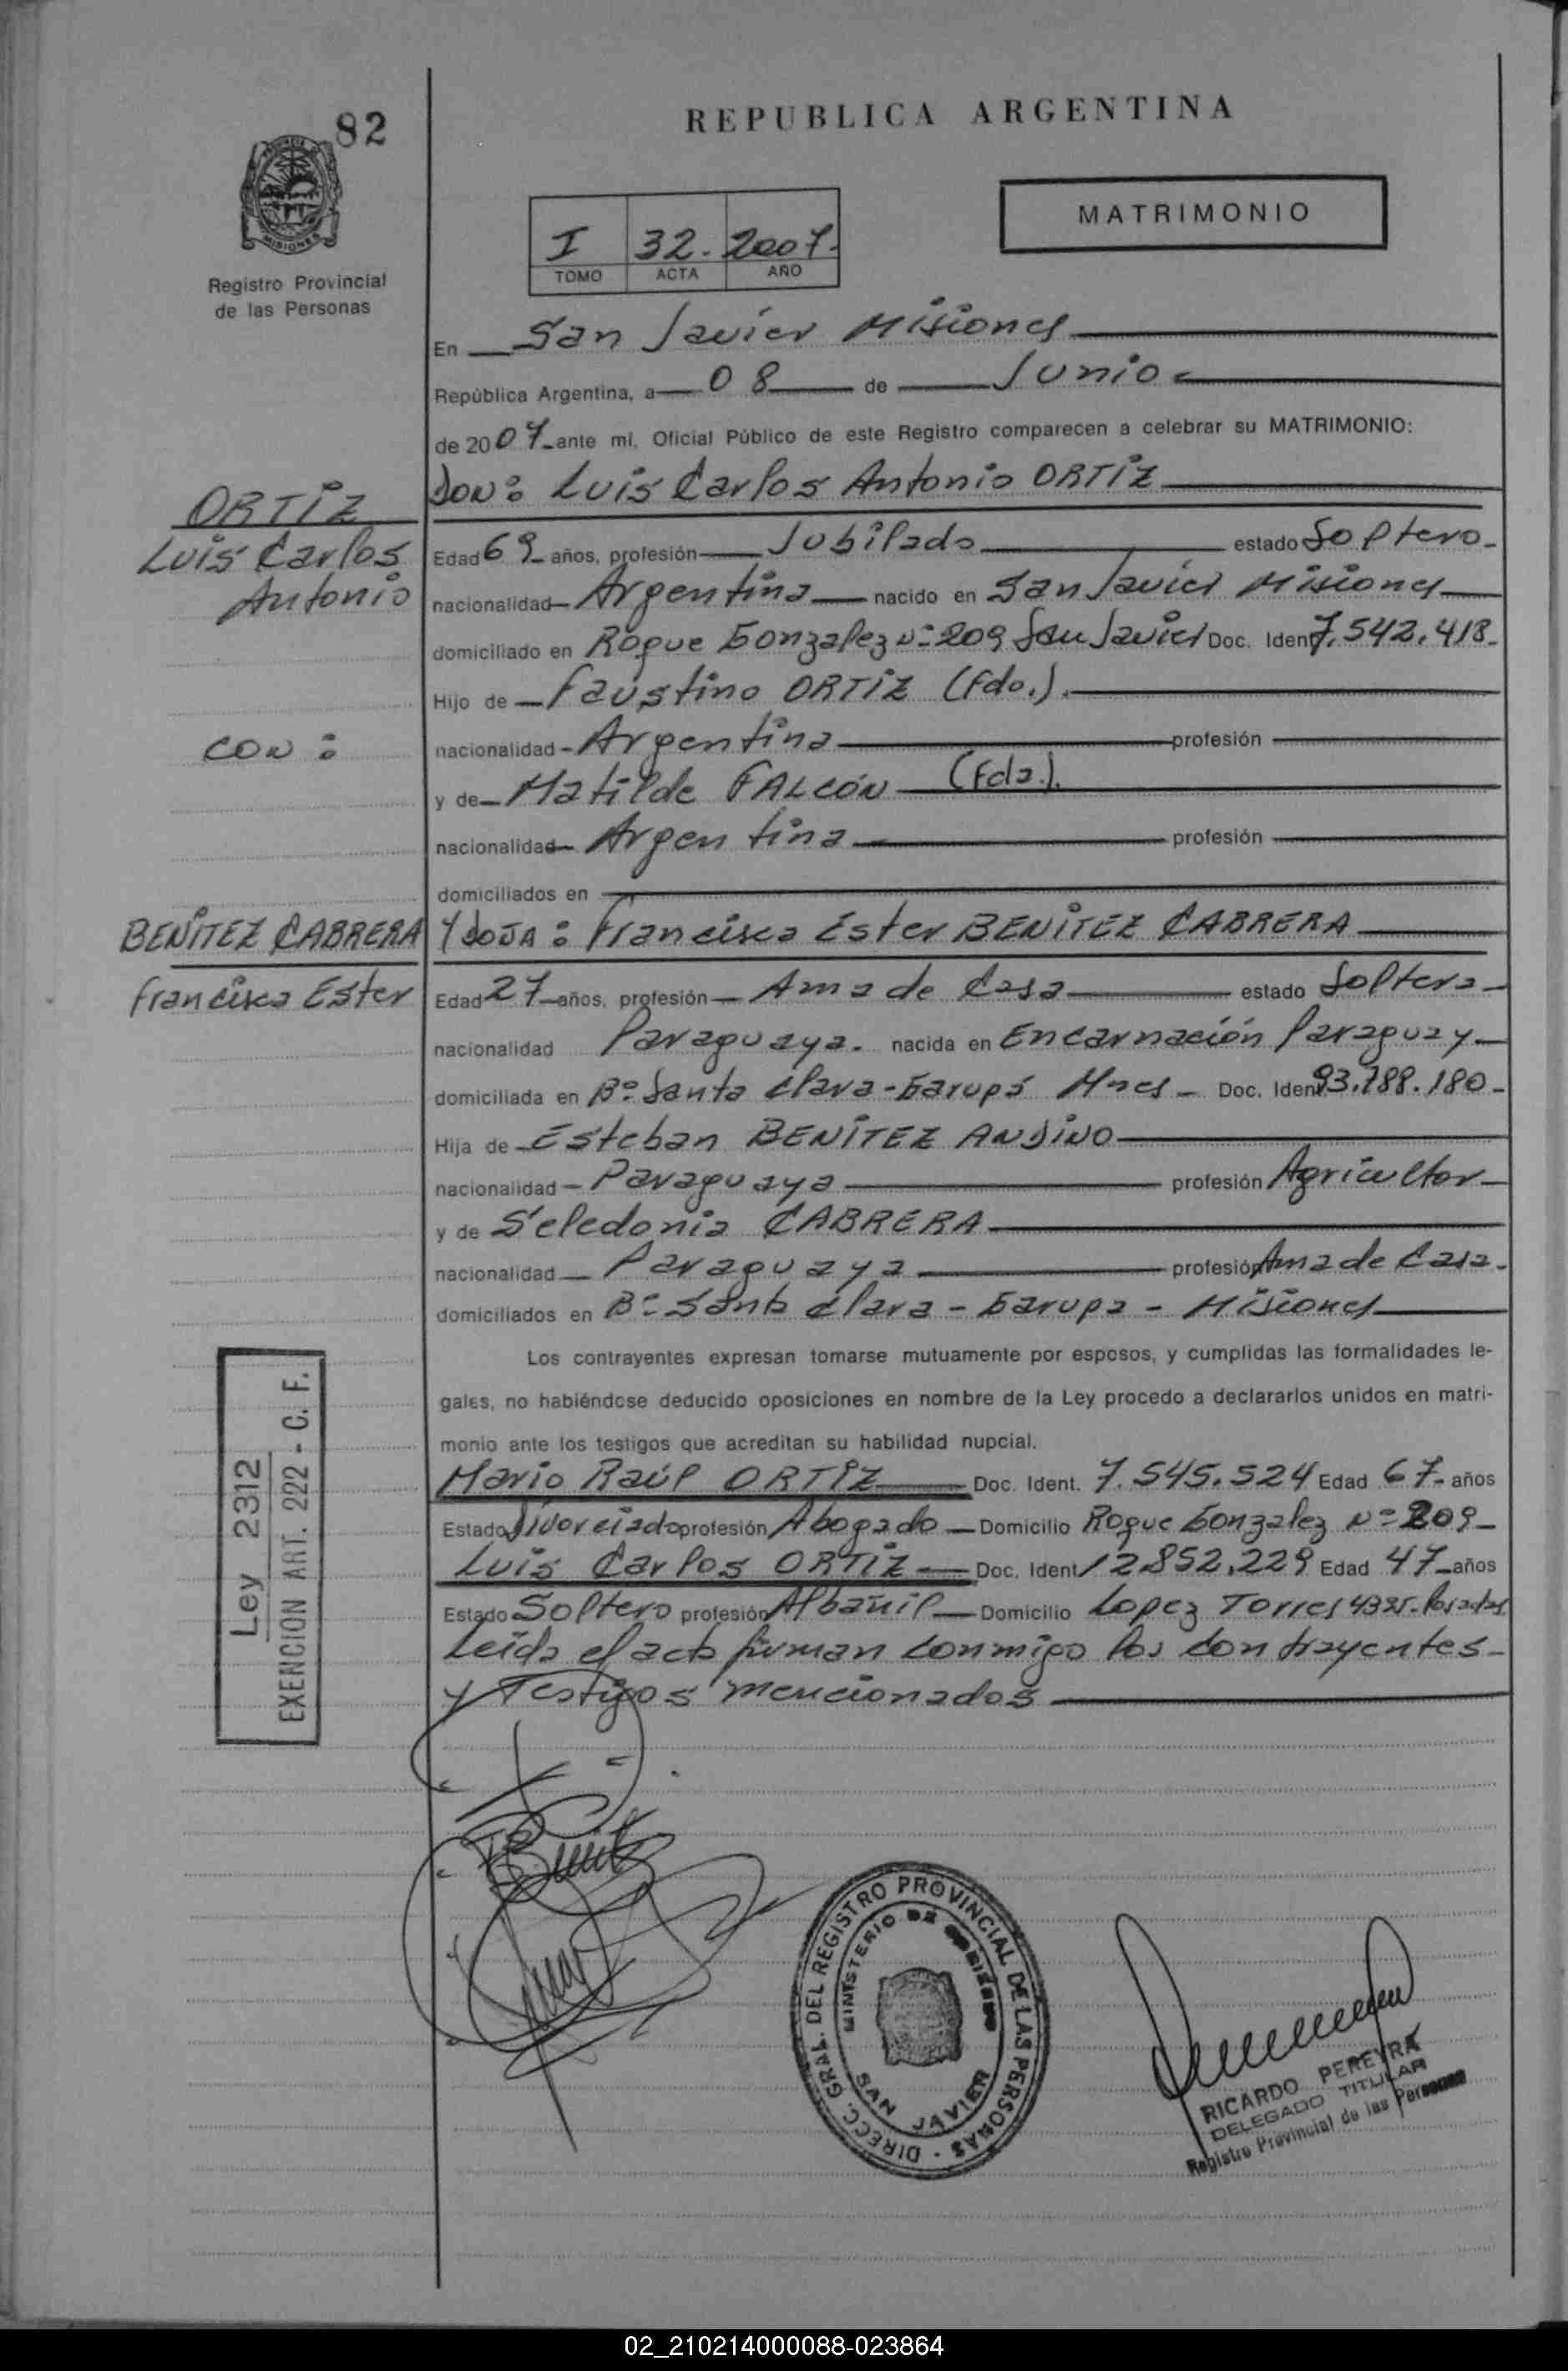 82
REPUBLICA ARGENTINA
MISIONES
Registro Provincial
de las Personas
I 32. 2007.
TOMO ACTA AÑO
MATRIMONIO
En San Javier Misiones
República Argentina, a 08 de Junio
de 2007 ante mí, Oficial Público de este Registro comparecen a celebrar su MATRIMONIO:
DON: Luis Carlos Antonio ORTIZ
ORTIZ
Luis Carlos
Antonio
Edad 69 años, profesión Jubilado estado Soltero
nacionalidad Argentina nacido en San Javier Misiones
domiciliado en Roque Gonzalez Nº 209 San Javier Doc. Ident. 7.542.418
Hijo de Faustino ORTIZ (Fdo.).
CON:
nacionalidad Argentina profesión
y de Matilde FALCÓN (Fda.).
nacionalidad Argentina profesión
domiciliados en
BENITEZ CABRERA
Francisca Ester
Y DOÑA: Francisca Ester BENITEZ CABRERA
Edad 27 años, profesión Ama de Casa estado Soltera
nacionalidad Paraguaya. nacida en Encarnación Paraguay
domiciliada en Bº Santa Clara - Garupá Mnes Doc. Ident. 93.788.180
Hija de Esteban BENITEZ ANDINO
nacionalidad Paraguaya profesión Agricultor
y de Seledonia CABRERA
nacionalidad Paraguaya profesión Ama de Casa.
domiciliados en Bº Santa Clara - Garupa - Misiones
Los contrayentes expresan tomarse mutuamente por esposos, y cumplidas las formalidades le-
gales, no habiéndose deducido oposiciones en nombre de la Ley procedo a declararlos unidos en matri-
monio ante los testigos que acreditan su habilidad nupcial.
Mario Raúl ORTIZ Doc. Ident. 7.545.524 Edad 67 años
Estado Divorciado profesión Abogado Domicilio Roque Gonzalez Nº 209
Luis Carlos ORTIZ Doc. Ident. 12852.229 Edad 47 años
Estado Soltero profesión Albañil Domicilio Lopez Torres 4325 - Posadas
Leída el acta firman conmigo los contrayentes
y Testigos mencionados
Ley 2312
EXENCION ART. 222 - C. F.
DIRECC. GRAL. DEL REGISTRO PROVINCIAL DE LAS PERSONAS
MINISTERIO DE GOBIERNO
SAN JAVIER
RICARDO PEREYRA
DELEGADO TITULAR
Registro Provincial de las Personas
02_210214000088-023864